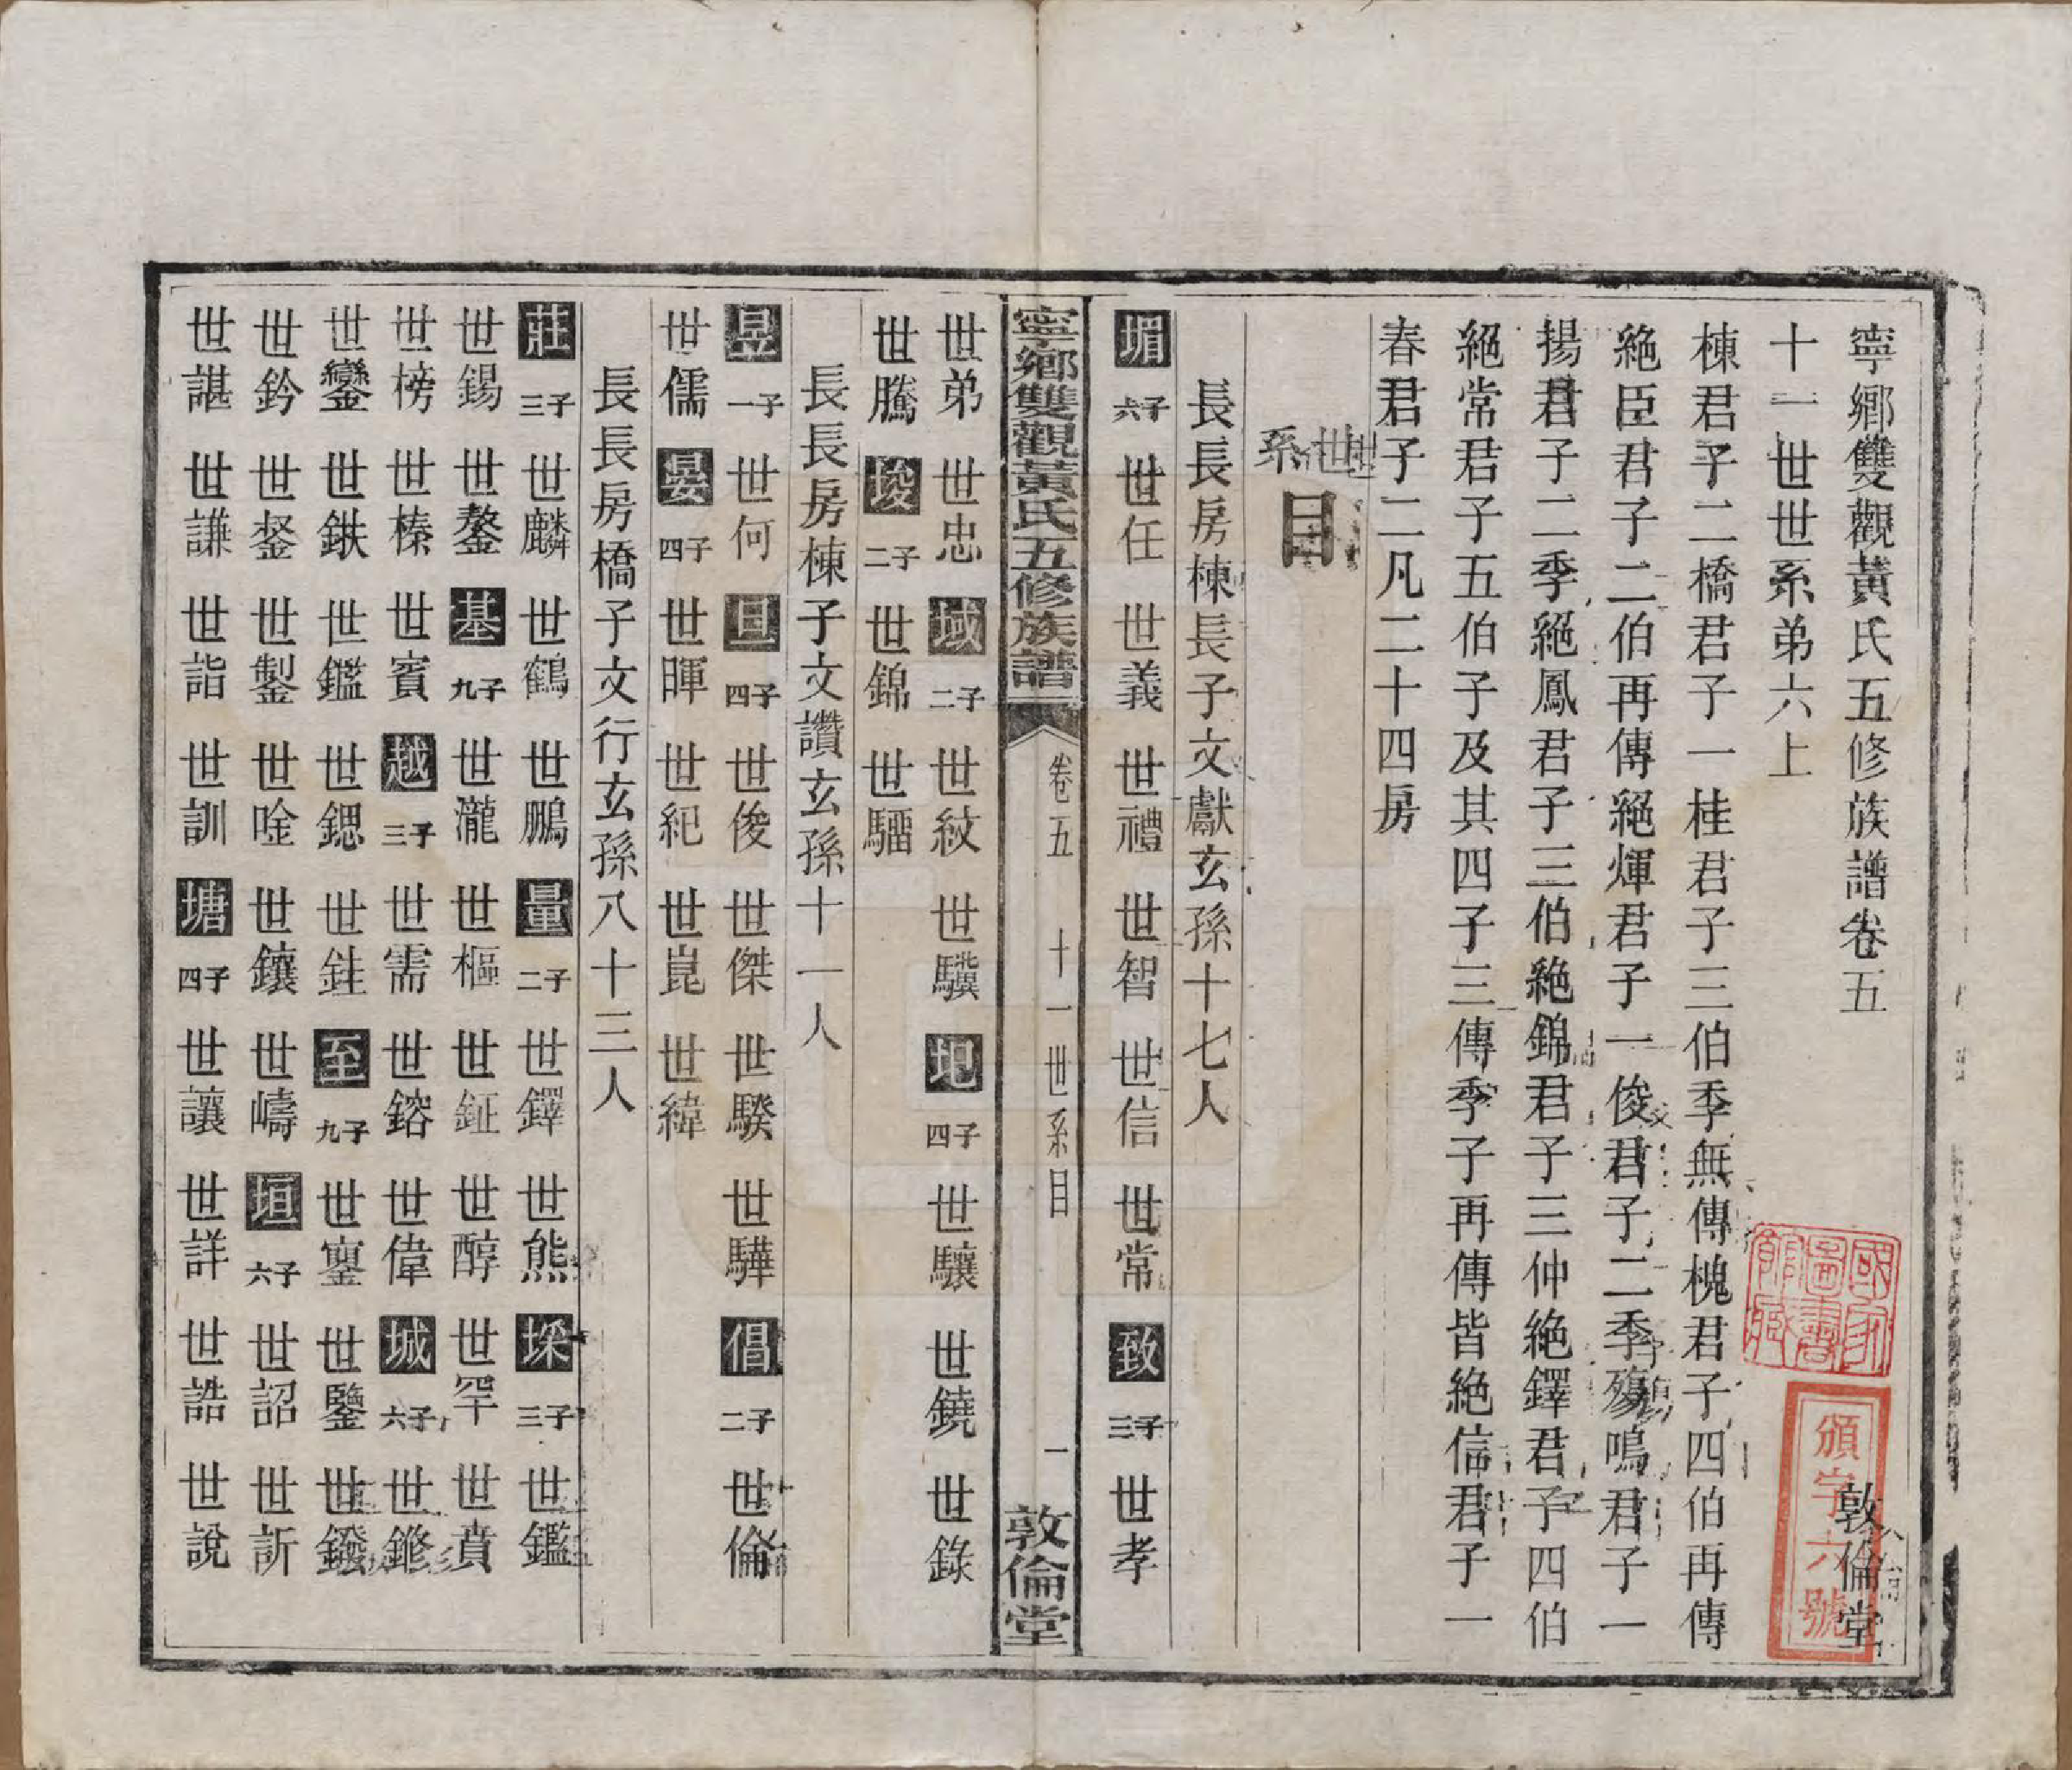 寧鄉雙觀黃氏五修族譜卷五
敦倫堂
十一世世系弟六上
棟君子二橋君子一桂君子三伯季無傳槐君子四伯再傳
絕臣君子二伯再傳絕煇君子一俊君子二季殤鳴君子一
揚君子二季絕鳳君子三伯絕錦君子三仲絕鐸君子四伯
絕常君子五伯子及其四子三傳季子再傳皆絕信君子一
春君子二凡二十四房
世系目
長長房棟長子文獻玄孫十七人
堳 子六 世任 世義 世禮 世智 世信 世常 致 子三 世孝
寧鄉雙觀黃氏五修族譜 卷五 十一世系目 一 敦倫堂
世弟 世忠 域 子二 世紋 世驥 圯 子四 世驤 世鐃 世錄
世騰 埈 子二 世錦 世騮
長長房棟子文讚玄孫十一人
昱 子一 世何 旦 子四 世俊 世傑 世騤 世驊 倡 子二 世倫
世儒 晏 子四 世暉 世紀 世崑 世緯
長長房橋子文行玄孫八十三人
莊 子三 世麟 世鶴 世鵬 量 子二 世鐸 世熊 埰 子三 世鑑
世錫 世鏊 基 子九 世瀧 世樞 世鉦 世醇 世罕 世賁
世榜 世榛 世賓 越 子三 世需 世鎔 世偉 城 子六 世鎀
世鑾 世鉄 世鑑 世鍶 世銈 至 子九 世鑾 世鑒 世鏺
世鈐 世鋬 世鏨 世唫 世鑲 世嶹 垣 子六 世詔 世訢
世諶 世謙 世詣 世訓 塘 子四 世讓 世詳 世誥 世說
國家圖書館藏
頒字六號